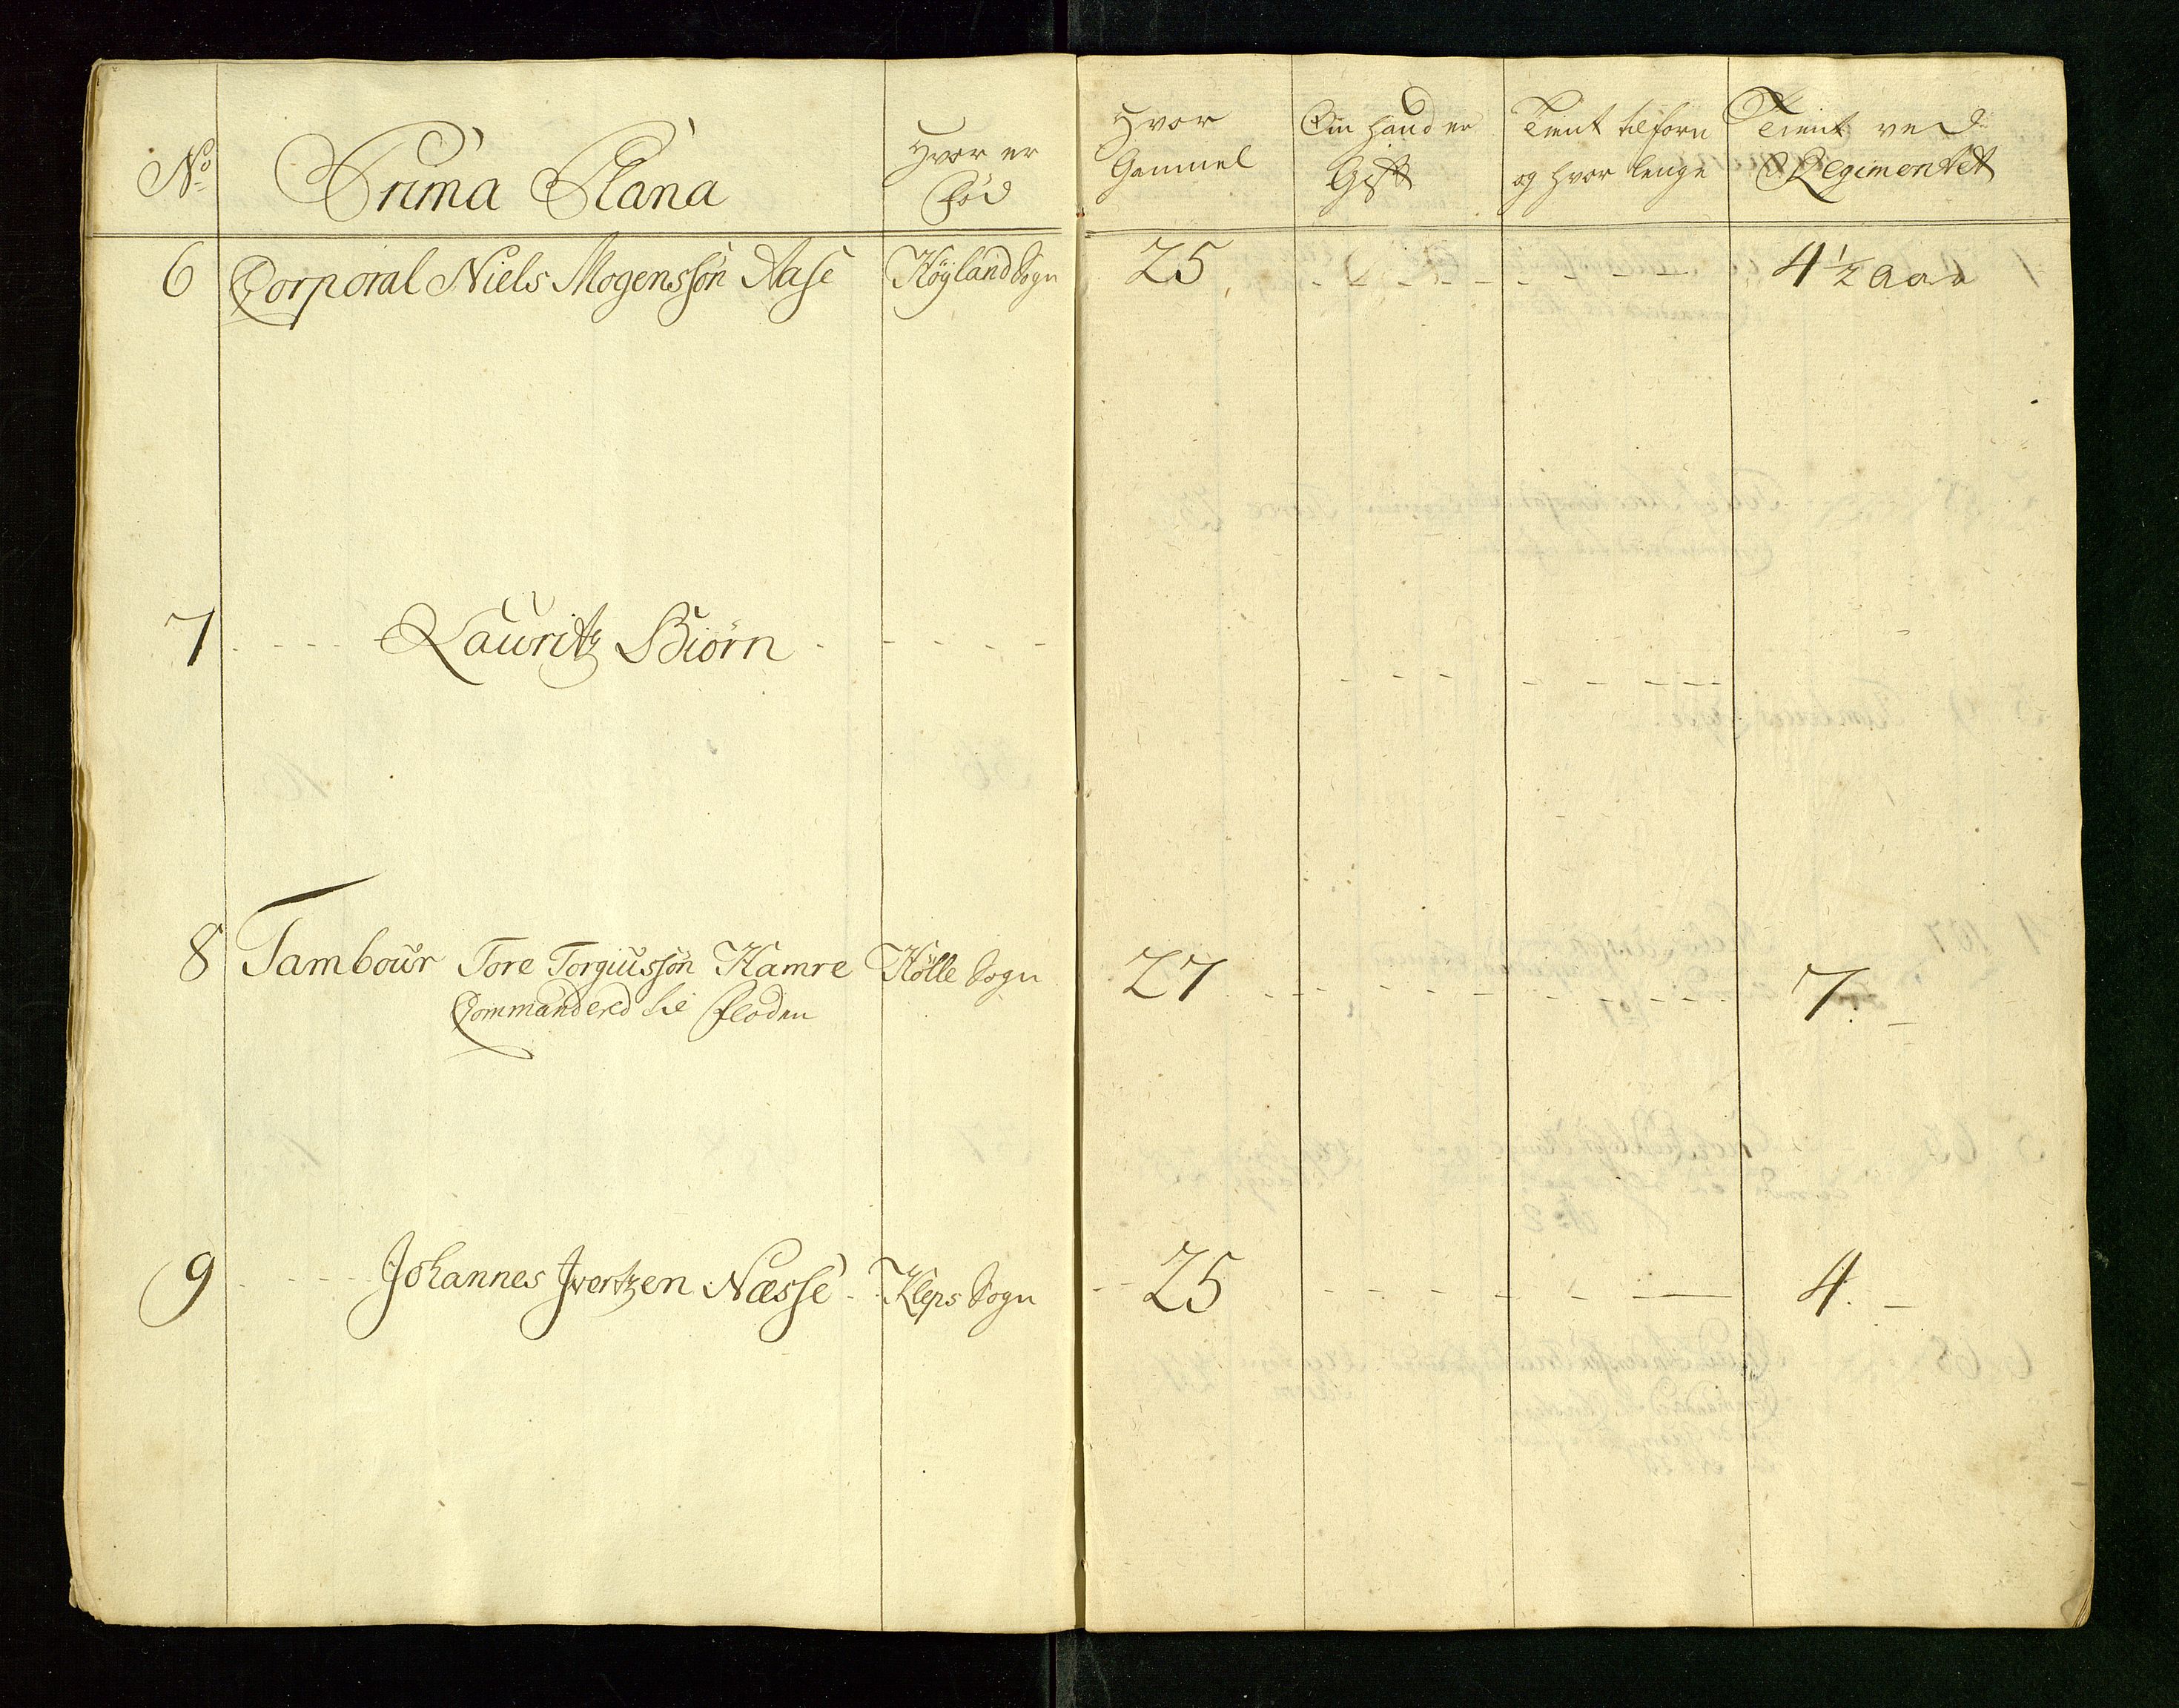 No Prima Plana Hvor er Fød Hvor Gammel Om hand er Gift Tient tilforn og hvor lenge Tient ved Regimentet
6 Corporal Niels Mogenssøn Aase Høyland Sogn 25 - - - - - - - - 4 1/2 Aar
7 - - - - Lauritz Biørn - - - - - - - - - - - - -
8 Tambour Tore Torgiussøn Hamre Hölle Sogn 27 - - - - - - - - 7. -
Commandered til Floden
9 - - - - Johannes Jvertzen Næsse - Kleps Sogn - 25 - - - - - - 4. -